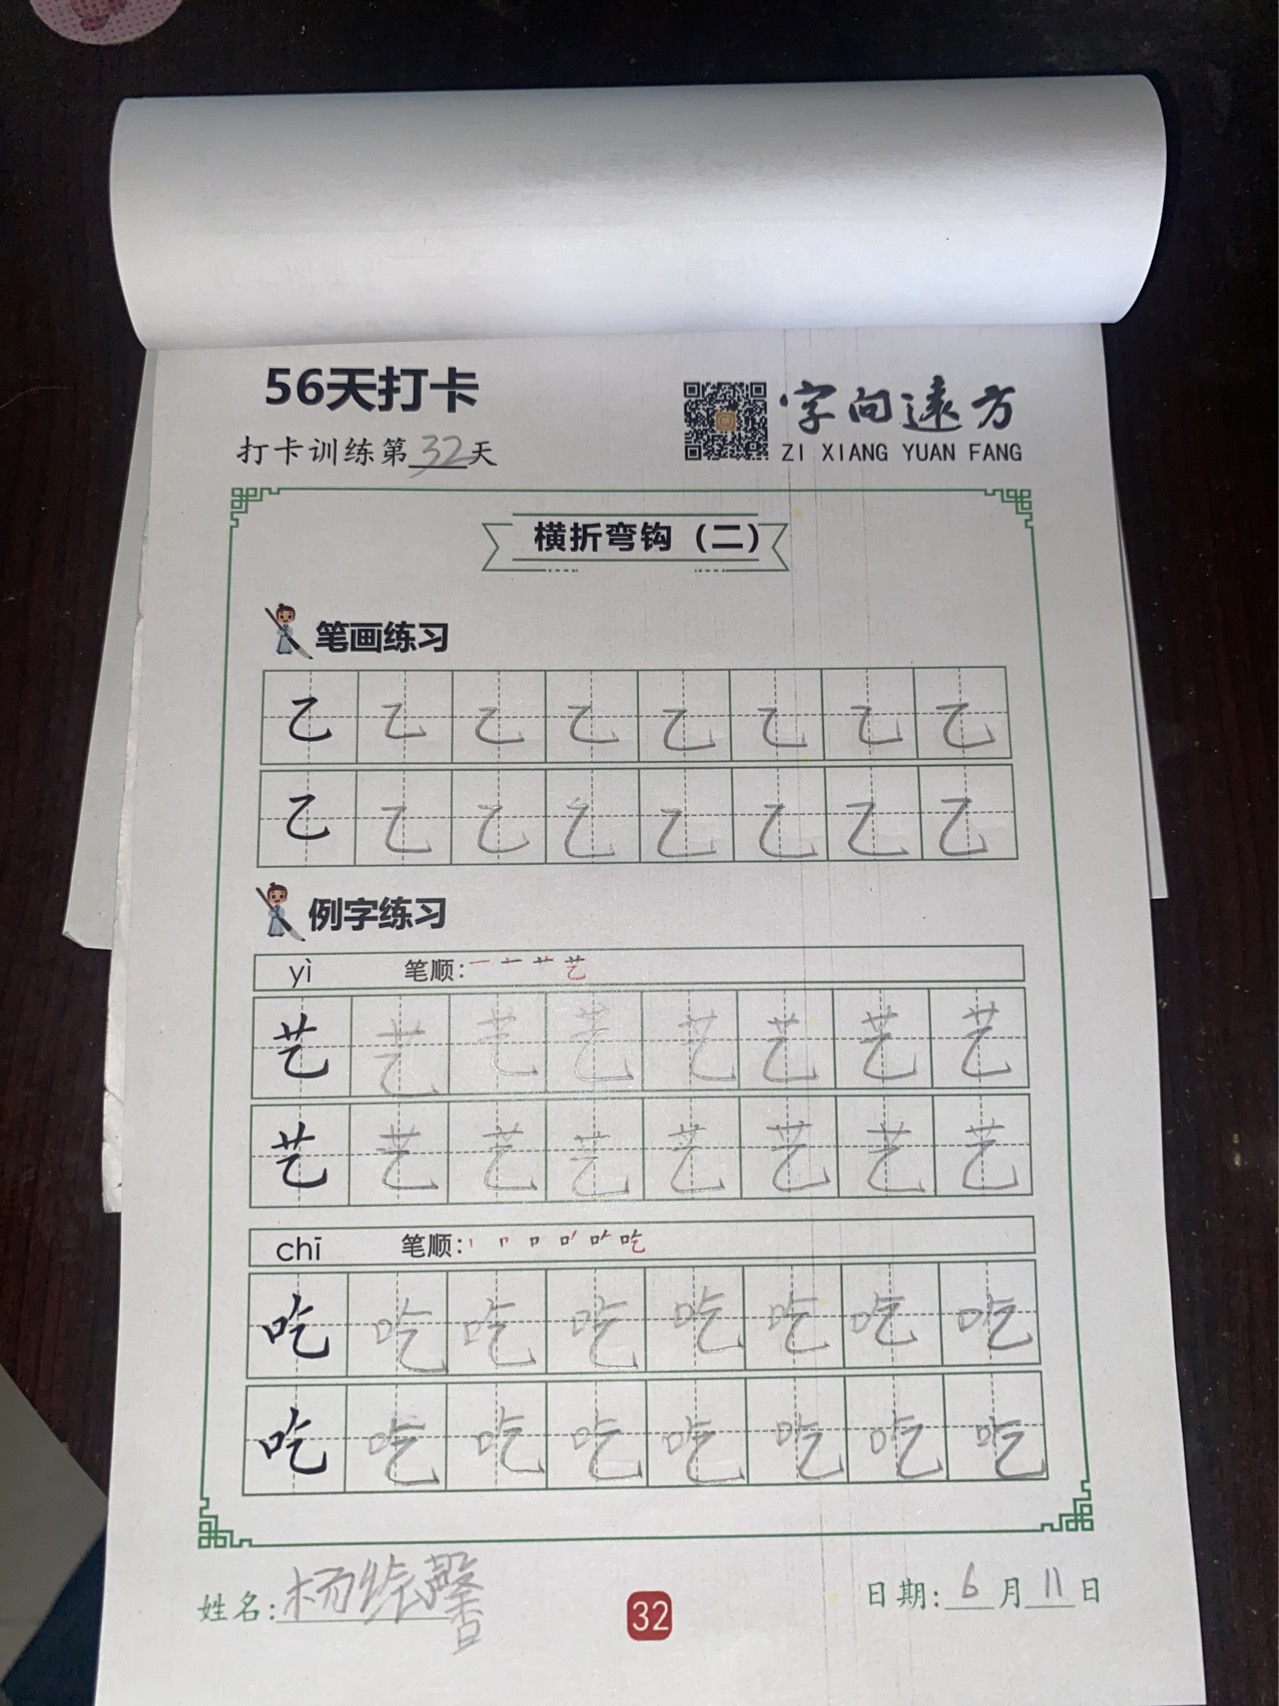 56天打卡
打卡训练第32天
字向远方
ZI XIANG YUAN FANG
横折弯钩（二）
笔画练习
乙 乙 乙 乙 乙 乙 乙 乙
乙 乙 乙 乙 乙 乙 乙 乙
例字练习
yì 笔顺: 一 十 艹 艺
艺 艺 艺 艺 艺 艺 艺 艺
艺 艺 艺 艺 艺 艺 艺 艺
chī 笔顺: 吃
吃 吃 吃 吃 吃 吃 吃 吃
吃 吃 吃 吃 吃 吃 吃 吃
姓名: 杨绘馨
32
日期: 6月11日